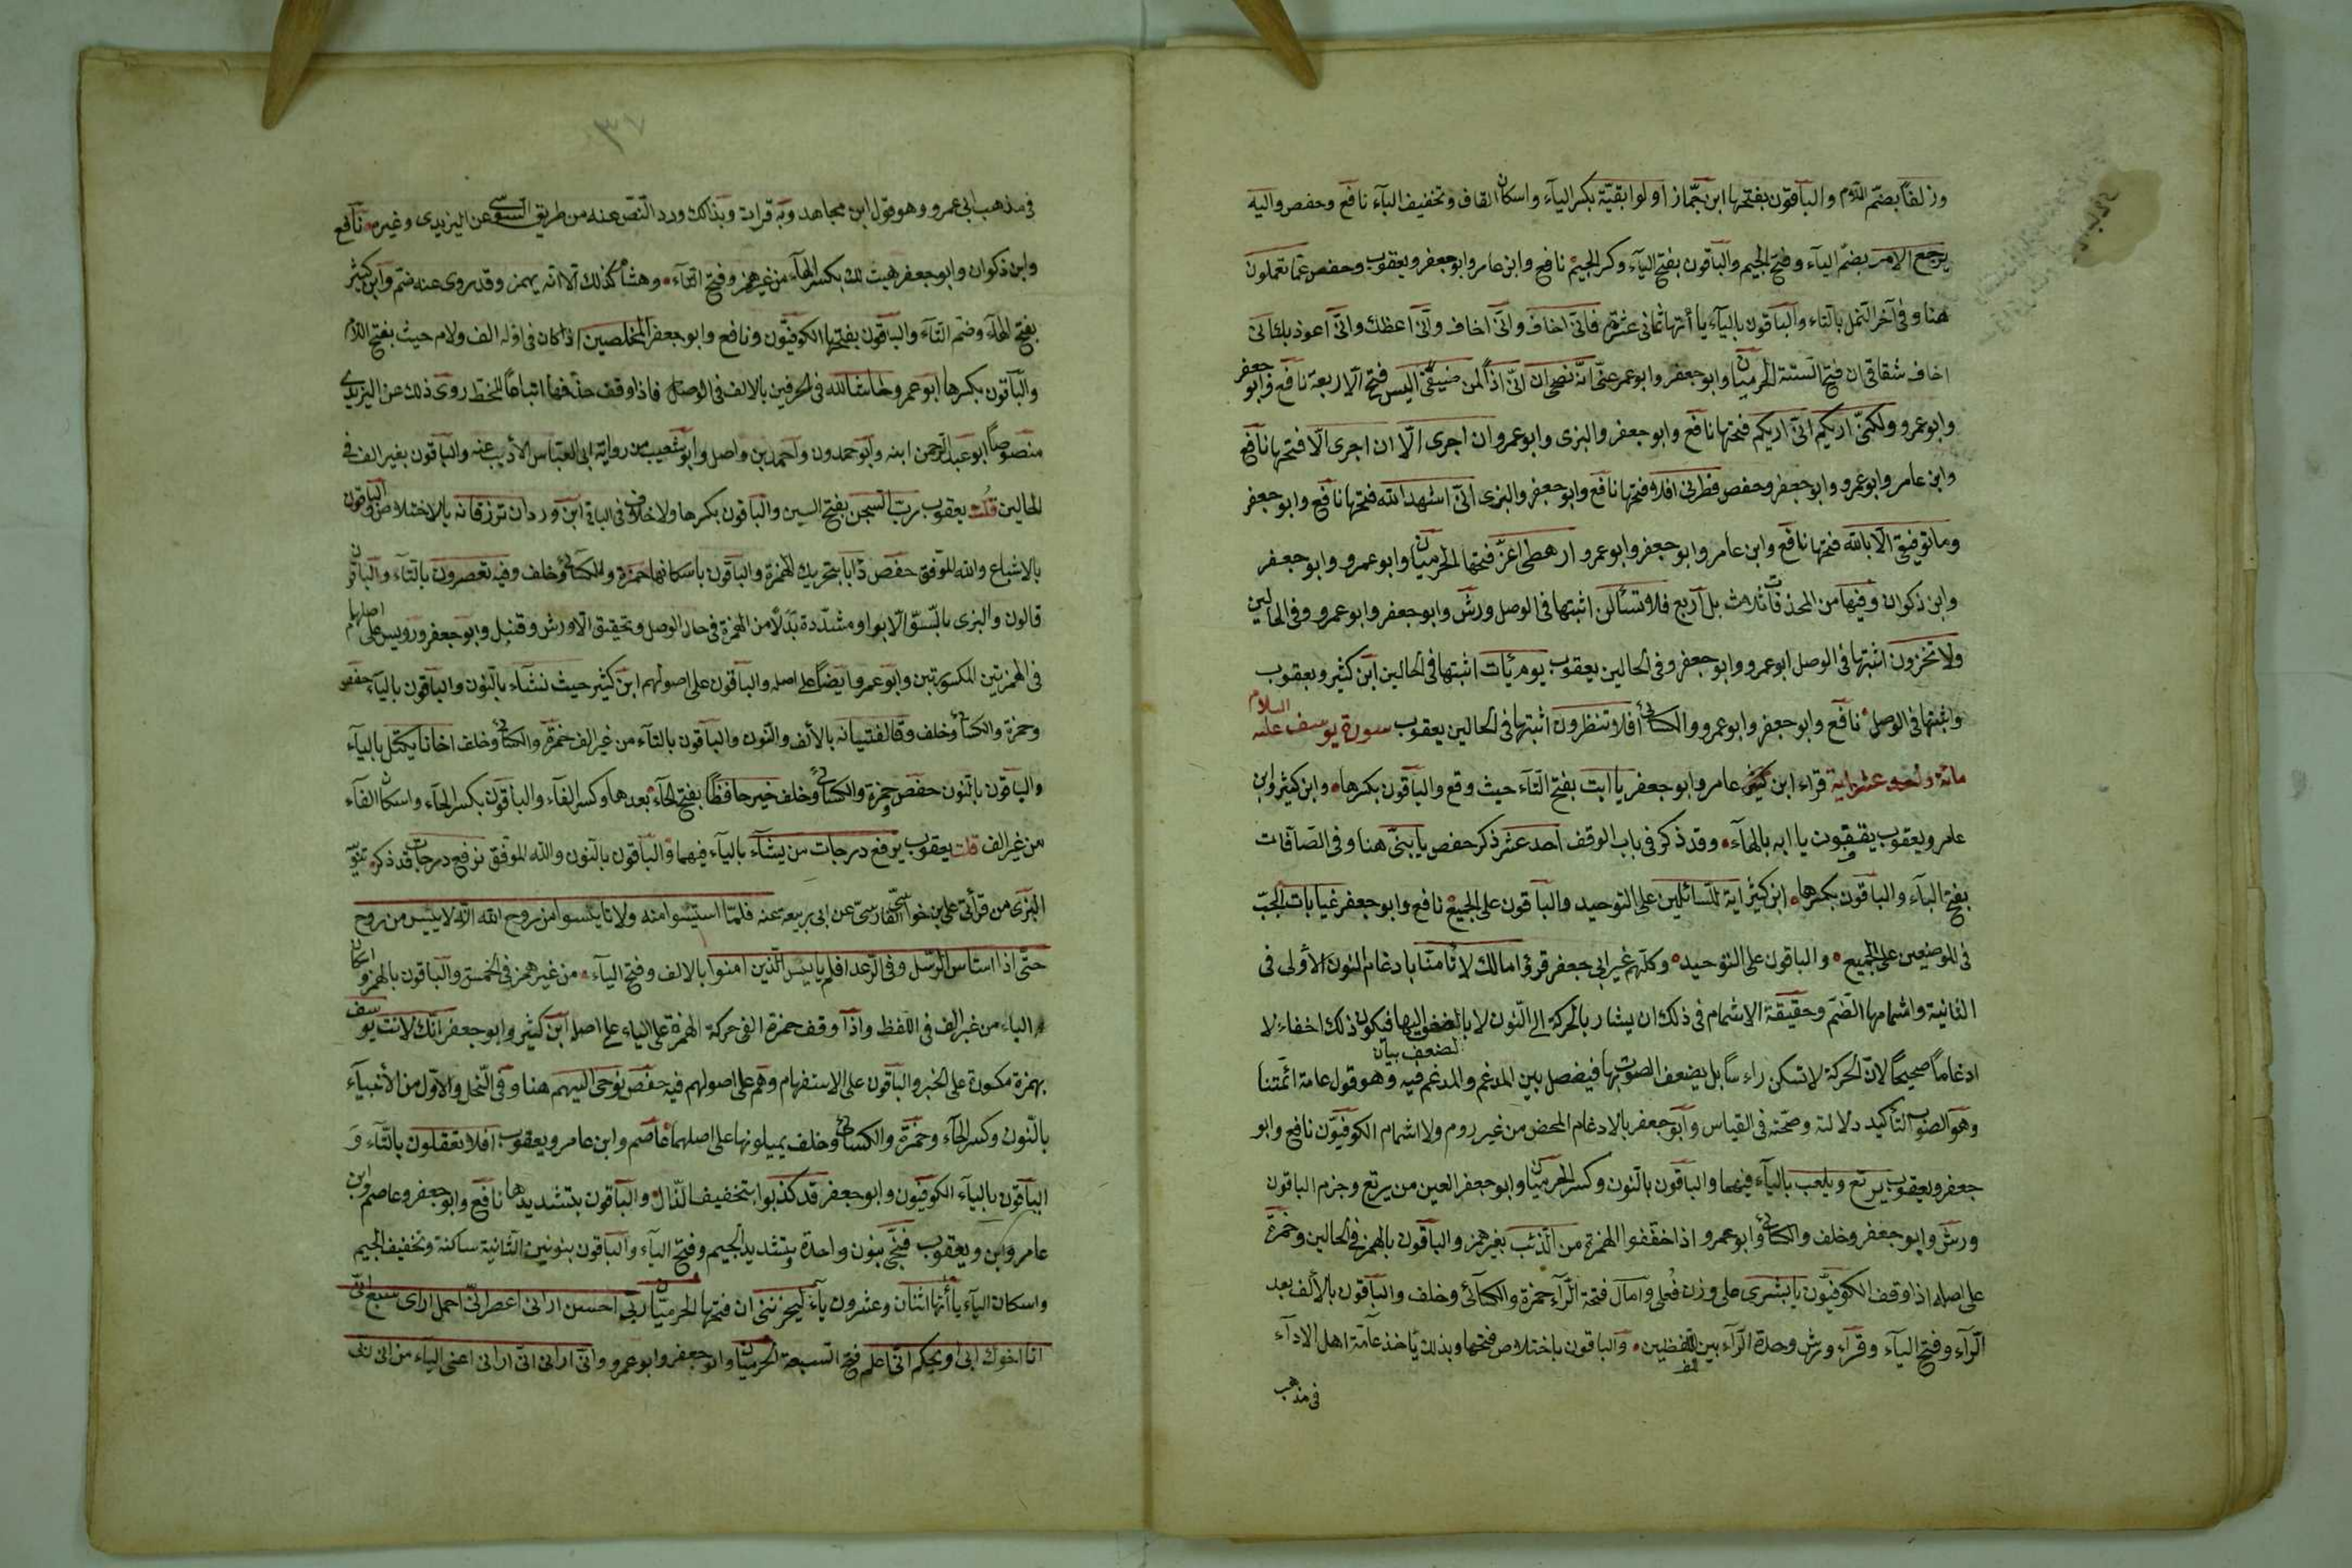 وزلفا بضم اللام والباقون بفتحها ابن جماز اولوا بقية بكسر الباء واسكان القاف وتخفيف الياء نافع وحفص واليه
يرجع الامر بضم الياء وفتح الجيم والباقون بفتح الياء وكسر الجيم نافع وابن عامر وابو جعفر ويعقوب وحفص عما تعملون
هنا وفى آخر النمل بالتاء والباقون بالياء يا أتها ثمانى عشرة فانى اخاف وانى اخاف وانى اعظك وانى اعوذ بك انى
اخاف شقاقى ان فتح الستة الحرميان وابو جعفر وابو عمرو عنى انه نصحى ان انى اذا لمن ضيفى اليس فتح الاربعة نافع وابو جعفر
وابو عمرو ولكنى اريكم انى اريكم فتحها نافع وابو جعفر والبزى وابو عمرو ان اجرى الا ان اجرى الا فتحها نافع
وابن عامر وابو عمرو وابو جعفر وحفص فطرنى افلا فتحها نافع وابو جعفر والبزى انى اشهد الله فتحها نافع وابو جعفر
وما توفيقى الا بالله فتحها نافع وابن عامر وابو جعفر وابو عمرو ارهطى اعز فتحها الحرميان وابو عمرو وابو جعفر
وابن ذكوان وفيها من المحذوفات ثلاث بل اربع فلا تسئلن اثبتها فى الوصل ورش وابو جعفر وابو عمرو وفى الحالين
ولا تخزون اثبتها فى الوصل ابو عمرو وابو جعفر وفى الحالين يعقوب يوم يأت اثبتها فى الحالين ابن كثير ويعقوب
واثبتها فى الوصل نافع وابو جعفر وابو عمرو والكسائى افلا تنظرون اثبتها فى الحالين يعقوب سورة يوسف عليه السلام
مائة واحد عشر اية قراء ابن عامر وابو جعفر يا ابت بفتح التاء حيث وقع والباقون بكسرها وابن كثير وابن
عامر ويعقوب يقفون يا ابه بالهاء وقد ذكر فى باب الوقف احد عشر ذكر حفص يا بنى هنا وفى الصافات
بفتح الياء والباقون بكسرها ابن كثير اية للسائلين على التوحيد والباقون على الجمع نافع وابو جعفر غيابات الجب
فى الموضعين على الجميع والباقون على التوحيد وكلهم غير ابى جعفر قرؤا مالك لا تأمنا بادغام النون الأولى فى
الثانية واشمامها الضم وحقيقة الاشمام فى ذلك ان يشار بالحركة الى النون لا بالعضو اليها فيكون ذلك اخفاء لا
ادغاما صحيحا لان الحركة لا تسكن راسا بل يضعف الصوت بها فيفصل بين المدغم والمدغم فيه وهو قول عامة ائمتنا
وهو الصواب لتأكيد دلالته وصحته فى القياس وابو جعفر بالادغام المحض من غير روم ولا اشمام الكوفيون نافع وابو
جعفر ويعقوب يرتع ويلعب بالياء فيهما والباقون بالنون وكسر الحرميان وابو جعفر العين من يرتع وجزم الباقون
ورش وابو جعفر وخلف والكسائى وابو عمرو اذا خففوا الهمزة من الذئب بغير همز والباقون بالهمز فى الحالين وحمزة
على اصله اذا وقف الكوفيون يا بشرى على وزن فعلى وامال فتحة الراء حمزة والكسائى وخلف والباقون بالألف بعد
الراء وفتح الياء وقراء ورش وحده الراء بين اللفظين والباقون باخلاص فتحها وبذلك يأخذ عامة اهل الاداء
فى مذهب
٣٧
فى مذهب ابى عمرو وهو قول ابن مجاهد وبه قرات وبذلك ورد النص عنه من طريق السوسى عن اليزيدى وغيره نافع
وابن ذكوان وابو جعفر هيت لك بكسر الهاء من غير همز وفتح التاء وهشام كذلك الا انه يهمز وقد روى عنه ضم وابن كثير
بفتح الهاء وضم التاء والباقون بفتحها الكوفيون ونافع وابو جعفر المخلصين اذا كان فى اوله الف ولام حيث بفتح اللام
والباقون بكسرها ابو عمرو حاشا لله فى الحرفين بالالف فى الوصل فاذا وقف حذفها اتباعا للخط روى ذلك عن اليزيدى
منصوصا ابو عبد الرحمن ابنه وابو حمدون واحمد بن واصل وابو شعيب من رواية ابى العباس الأديب عنه والباقون بغير الف فى
الحالين قلت يعقوب رب السجن بفتح السين والباقون بكسرها ولا خلاف فى الباقى ابن وردان ترزقانه بالاختلاس والباقون
بالاشباع والله الموفق حفص دأبا بتحريك الهمزة والباقون باسكانها حمزة والكسائى وخلف وفيه تعصرون بالتاء والباقون
قالون والبزى بالسو الا بواو مشددة بدلا من الهمزة فى حال الوصل وتحقيق الا ورش وقنبل وابو جعفر ورويس على اصلهم
فى الهمزتين المكسورتين وابو عمرو ايضا على اصله والباقون على اصولهم ابن كثير حيث نشاء بالنون والباقون بالياء حفص
وحمزة والكسائى وخلف وقال لفتيانه بالألف والنون والباقون بالتاء من غير الف حمزة والكسائى وخلف اخانا يكتل بالياء
والباقون بالنون حفص حمزة والكسائى وخلف خير حافظا بفتح الحاء بعدها وكسر الفاء والباقون بكسر الحاء واسكان الفاء
من غير الف قلت يعقوب يرفع درجات من يشاء بالياء فيهما والباقون بالنون والله الموفق نرفع درجات قد ذكر
البزى من قرأتى على بن خواستى الفارسى عن ابى ربيعة عنه فلما استيسوا منه ولا تايسوا من روح الله انه لا ييس من روح
حتى اذا استاس الرسل وفى الرعد افلم يايس الذين امنوا بالالف وفتح الياء من غير همز فى الخمسة والباقون بالهمز واسكان
الياء من غير الف فى اللفظ واذا وقف حمزة القى حركة الهمزة على الياء على اصله ابن كثير وابو جعفر انك لانت يوسف
بهمزة مكسورة على الخبر والباقون على الاستفهام وهم على اصولهم فيه حفص نوحى اليهم هنا وفى النحل والاول من الأنبياء
بالنون وكسر الحاء وحمزة والكسائى وخلف يميلونها على اصلهما عاصم وابن عامر ويعقوب افلا تعقلون بالتاء و
الباقون بالياء الكوفيون وابو جعفر قد كذبوا بتخفيف الذال والباقون بتشديدها نافع وابو جعفر وعاصم وابن
عامر ويعقوب فنجى بنون واحدة وبتشديد الجيم وفتح الياء والباقون بنونين الثانية ساكنة وتخفيف الجيم
واسكان الياء يا أتها اثنان وعشرون ياء ليحزننى ان فتحها الحرميان ربى احسن ارانى اعصر انى احمل ارى سبع انى
انا اخوك ابى او يحكم انى اعلم فتح السبعة الحرميان وابو جعفر وابو عمرو وانى ارانى انى ارانى اعنى الياء من انى